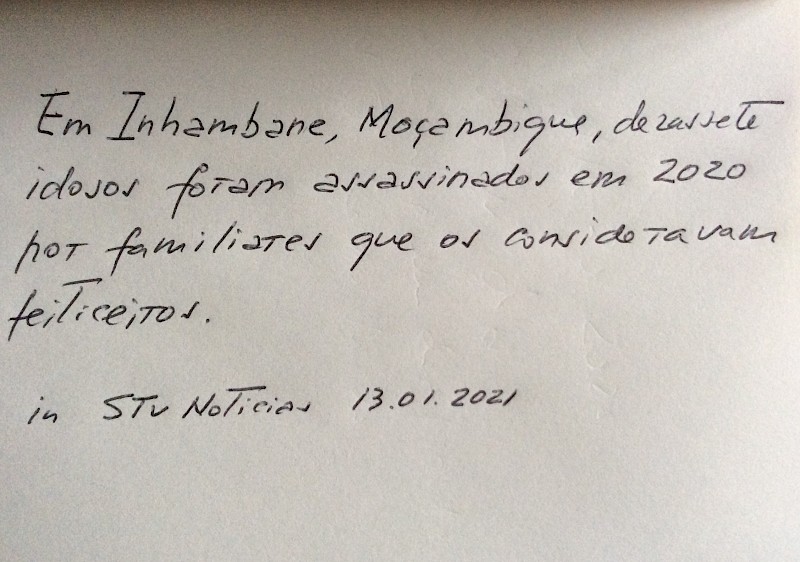 Em Inhambane, Moçambique, dezassete
idosos foram assassinados em 2020
por familiares que os consideravam
feiticeiros.
in STV Noticias 13.01.2021